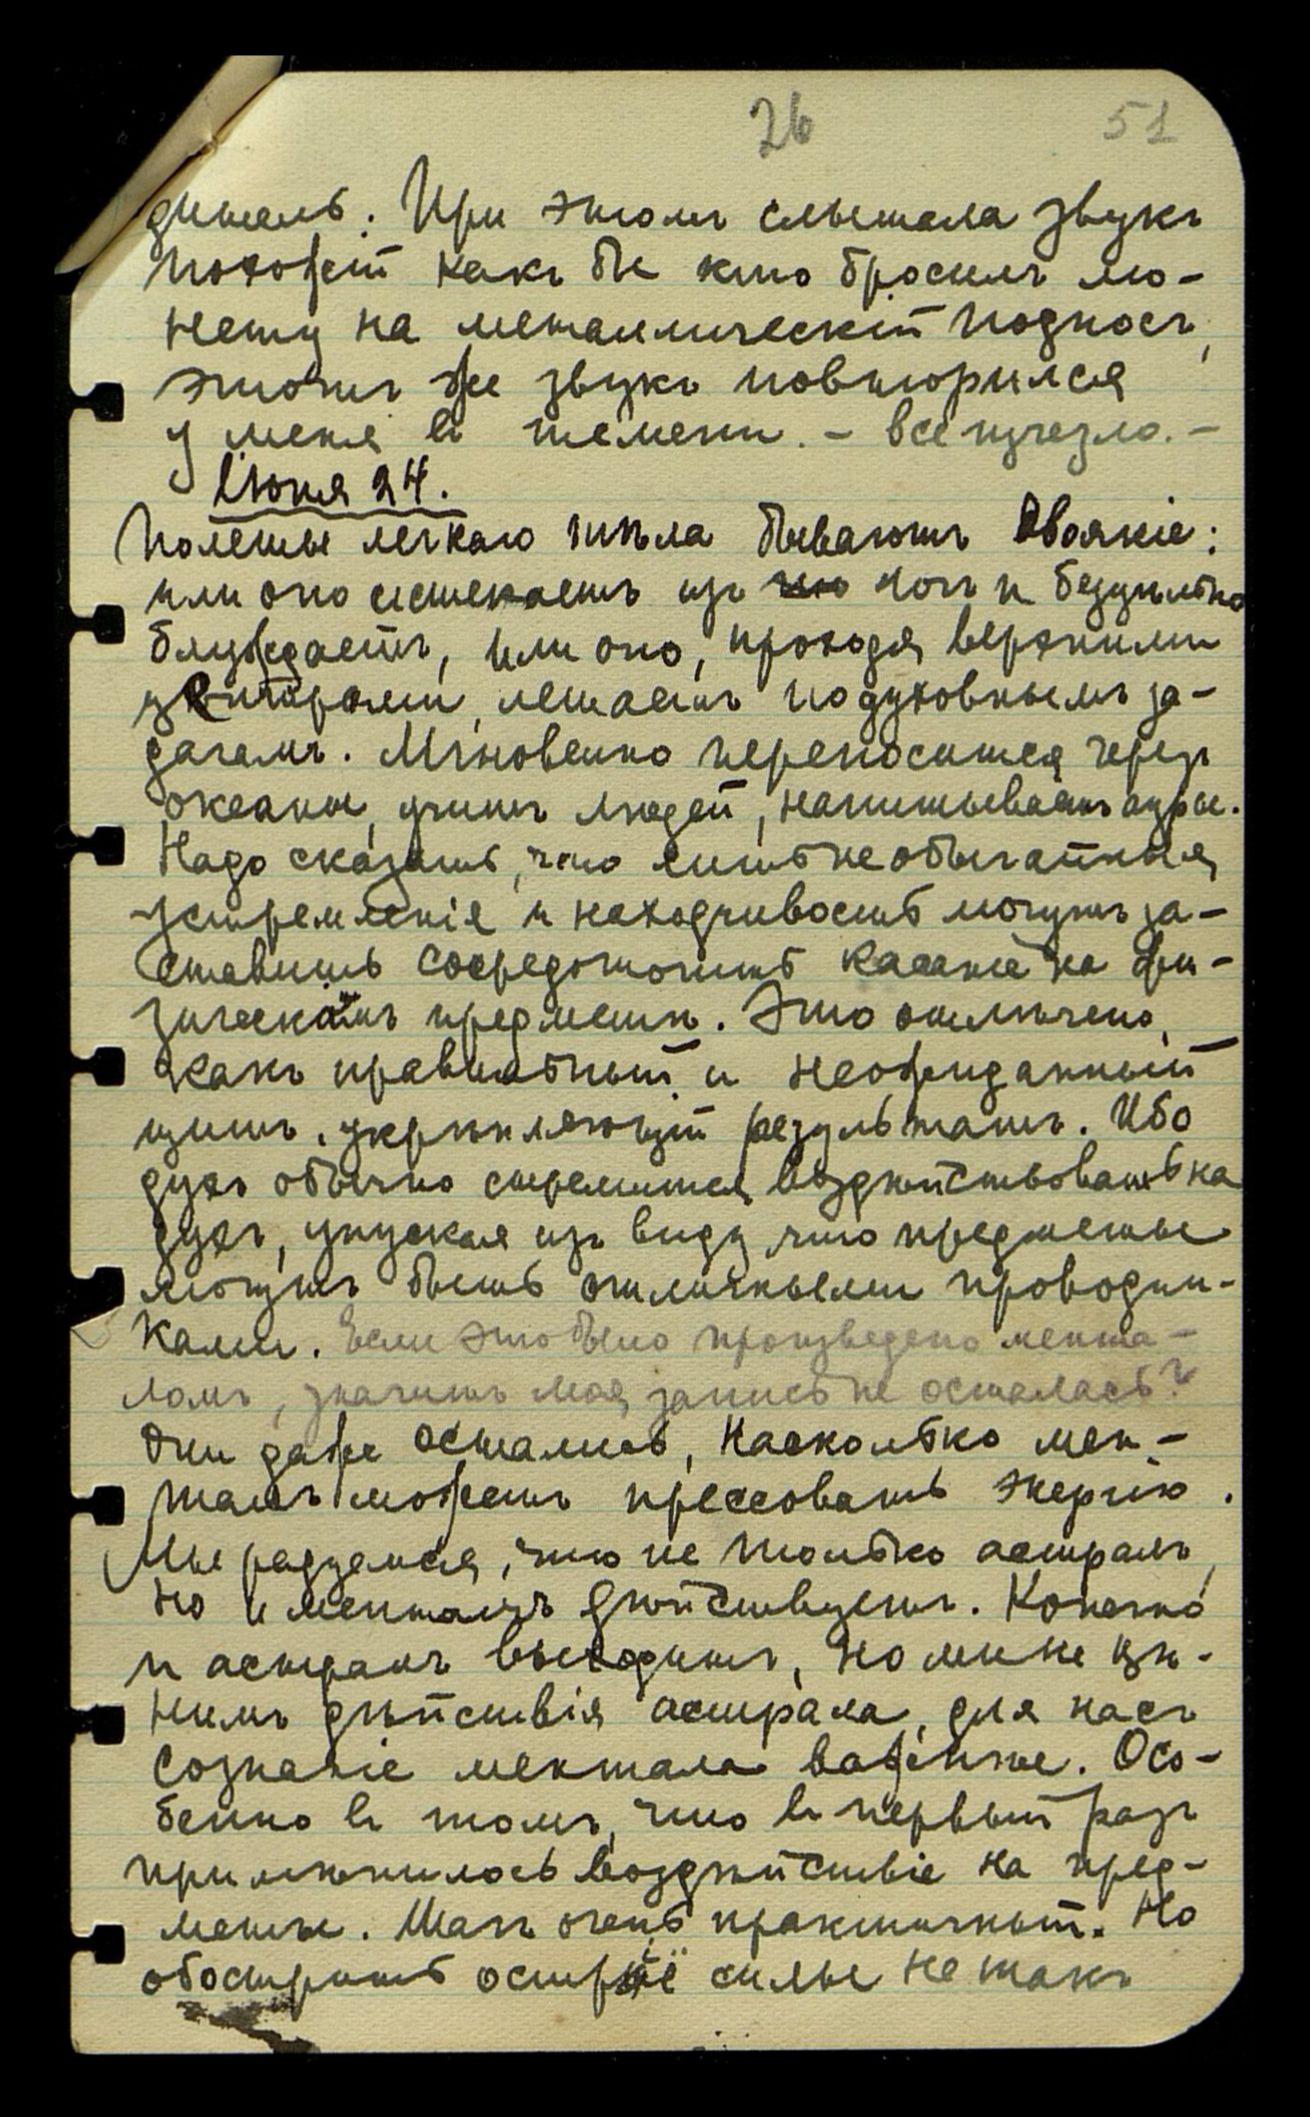 26 51
дитель. При этомъ слышала звукъ
похожій какъ бы кто бросилъ мо-
нету на металлическій подносъ,
этотъ же звукъ повторился
у меня въ темени. – все изчезло. –
Іюня 24.
Полеты легкаго тѣла бываютъ двоякіе:
или оно истекаетъ изъ ногъ и безцѣльно
блуждаетъ, или оно, проходя верхними
центрами, летаетъ по духовнымъ за-
дачамъ. Мгновенно переносится черезъ
океаны, учитъ людей, напитываетъ ауры.
Надо сказать, что лишь необычайныя
устремленія и находчивость могутъ за-
ставить сосредоточить касанье на фи-
зическомъ предметѣ. Это отмѣчено,
какъ правильный и неожиданный
щитъ, укрѣпляющій результатъ. Ибо
духъ обычно стремится воздѣйствовать на
духъ, упуская изъ виду, что предметы
могутъ быть отличными проводни-
ками. Если это было произведено мента-
ломъ, значитъ моя запись не осталась?
Они даже остались, насколько мен-
талъ можетъ прессовать энергію.
Мы радуемся, что не только астралъ,
но и менталъ дѣйствуетъ. Конечно
и астралъ выходитъ, но мы не цѣ-
нимъ дѣйствія астрала, для насъ
сознаніе ментала важнѣе. Осо-
бенно въ томъ, что въ первый разъ
примѣнилось воздѣйствіе на пред-
меты. Шагъ очень практичный. Но
обострить остріё силы не такъ